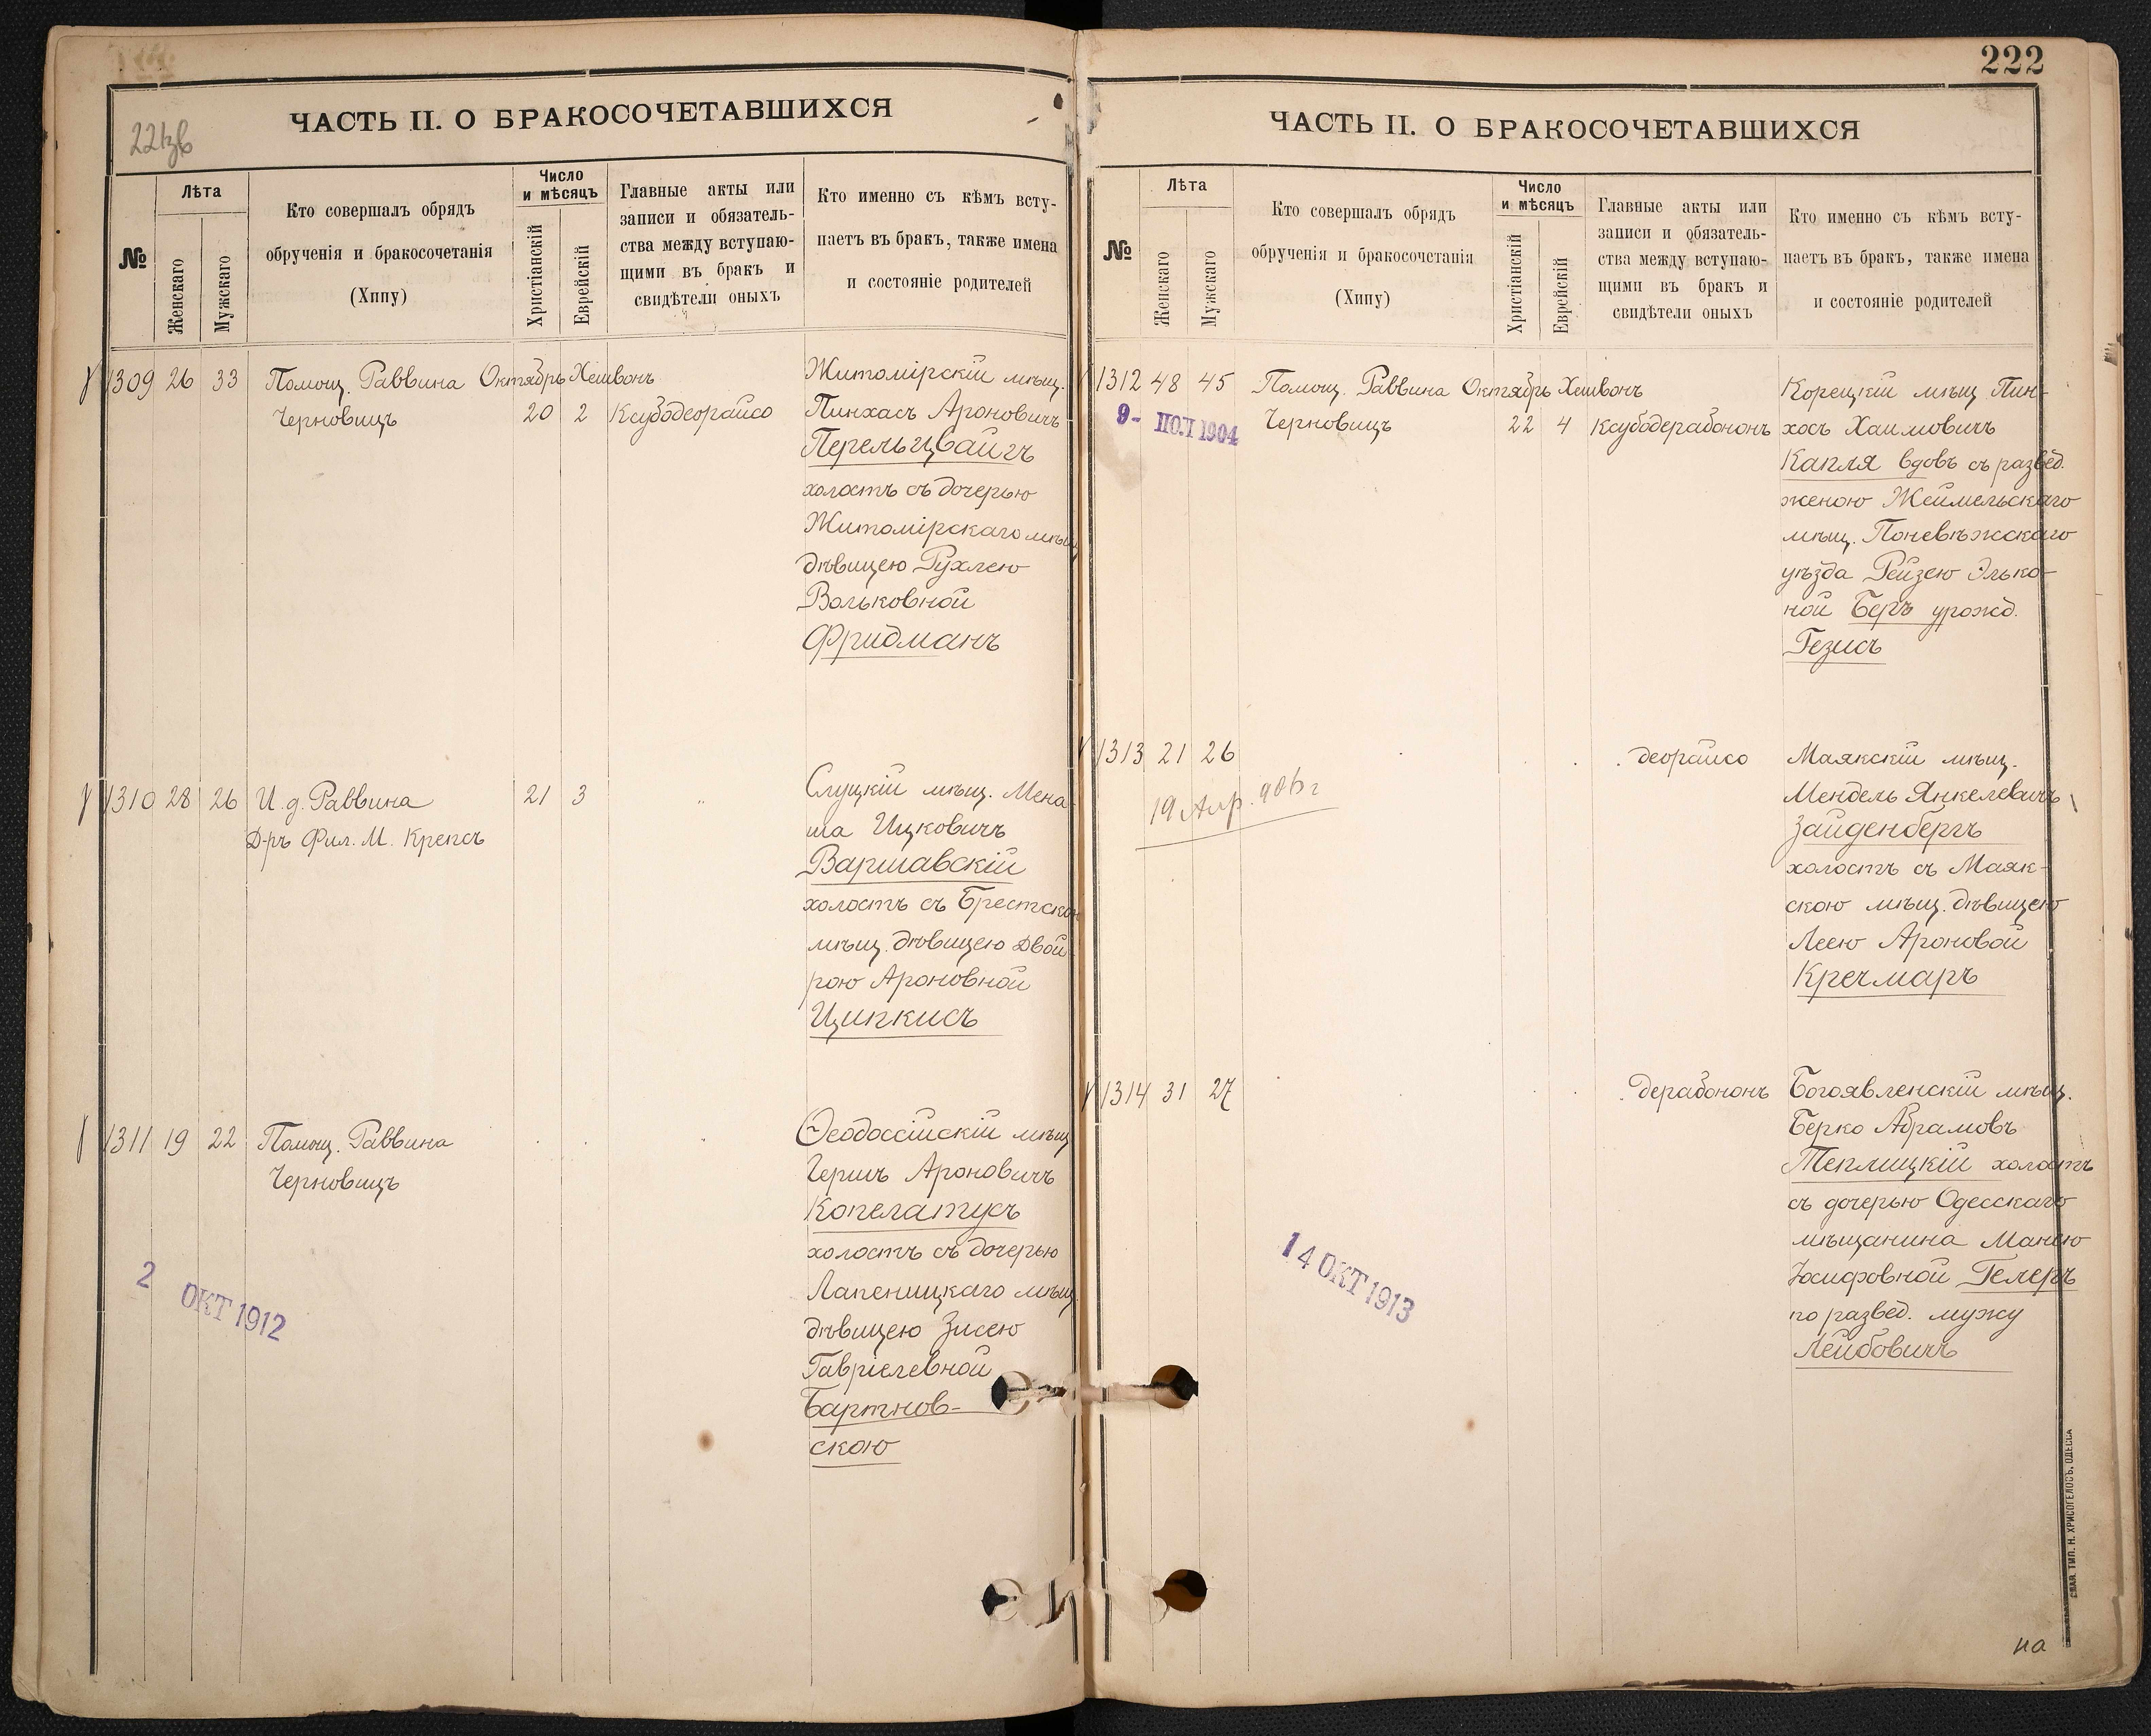 ЧАСТЬ II. О БРАКОСОЧЕТАВШИХСЯ
№
Лѣта
Женскаго
Мужскаго
Кто совершалъ обрядъ
обрученія и бракосочетанія
(Хипу)
Число
и мѣсяцъ
Христіанскій
Еврейскій
Главные акты или
записи и обязатель-
ства между вступаю-
щими въ бракъ и
свидѣтели оныхъ
Кто именно съ кѣмъ всту-
паетъ въ бракъ, также имена
и состояніе родителей
1309 26 33 Помощ. Раввина Октябрь Хешвонъ
Черновицъ 20 2 Ксубодеорайсо
Житомірскій мѣщ.
Пинхасъ Ароновичъ
Перельцвайгъ
холостъ съ дочерью
Житомірскаго мѣщ
дѣвицею Рухлею
Вольковной
Фридманъ
1310 28 26 И. д. Раввина 21 3 "
Д-ръ Фил. М. Крепсъ
Слуцкій мѣщ. Мена-
ша Ицковичъ
Варшавскій
холостъ съ Брестскою
мѣщ. дѣвицею Двой-
рою Ароновной
Ципкисъ
1311 19 22 Помощ. Раввина
Черновицъ
2 ОКТ 1912
Ѳеодоссійскій мѣщ
Гершъ Ароновичъ
Копелатусъ
холостъ съ дочерью
Лапеницкаго мѣщ.
дѣвицею Зисею
Гавріелевной
Бартнов-
скою
222
ЧАСТЬ II. О БРАКОСОЧЕТАВШИХСЯ
№
Лѣта
Женскаго
Мужскаго
Кто совершалъ обрядъ
обрученія и бракосочетанія
(Хипу)
Число
и мѣсяцъ
Христіанскій
Еврейскій
Главные акты или
записи и обязатель-
ства между вступаю-
щими въ бракъ и
свидѣтели оныхъ
Кто именно съ кѣмъ всту-
паетъ въ бракъ, также имена
и состояніе родителей
1312 48 45 Помощ. Раввина Октябрь Хешвонъ
9- ІЮЛ 1904
Черновицъ 22 4 Ксубодерабононъ
Корецкій мѣщ Пин-
хосъ Хаимовичъ
Капля вдовъ съ развед.
женою Жеймельскаго
мѣщ. Поневѣжскаго
уѣзда Рейзею Элько-
ной Беръ урожд.
Гезисъ
1313 21 26 деорайсо
19 Апр. 906 г
Маякскій мѣщ.
Мендель Янкелевичъ
Зайденбергъ
холостъ съ Маяк-
скою мѣщ. дѣвицею
Леею Ароновой
Кречмаръ
1314 31 27 дерабононъ
14 ОКТ 1913
Богоявленскій мѣщ.
Берко Абрамовъ
Теплицкій холостъ
съ дочерью Одесскаго
мѣщанина Манею
Іосифовной Гелеръ
по развед. мужу
Лейбовичъ
СЛАВ. ТИП. Н. ХРИСОГЕЛОСЪ, ОДЕССА